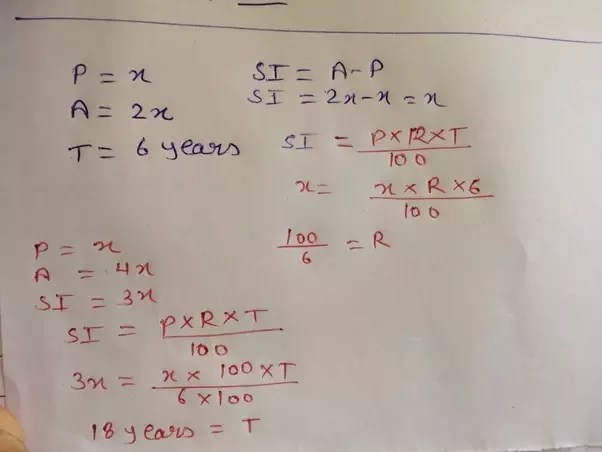 P = x
A = 2x
T = 6 years
SI = A-P
SI = 2x-x = x
SI = P×R×T/100
x = x×R×6/100
100/6 = R
P = x
A = 4x
SI = 3x
SI = P×R×T/100
3x = x×100×T/6×100
18 years = T